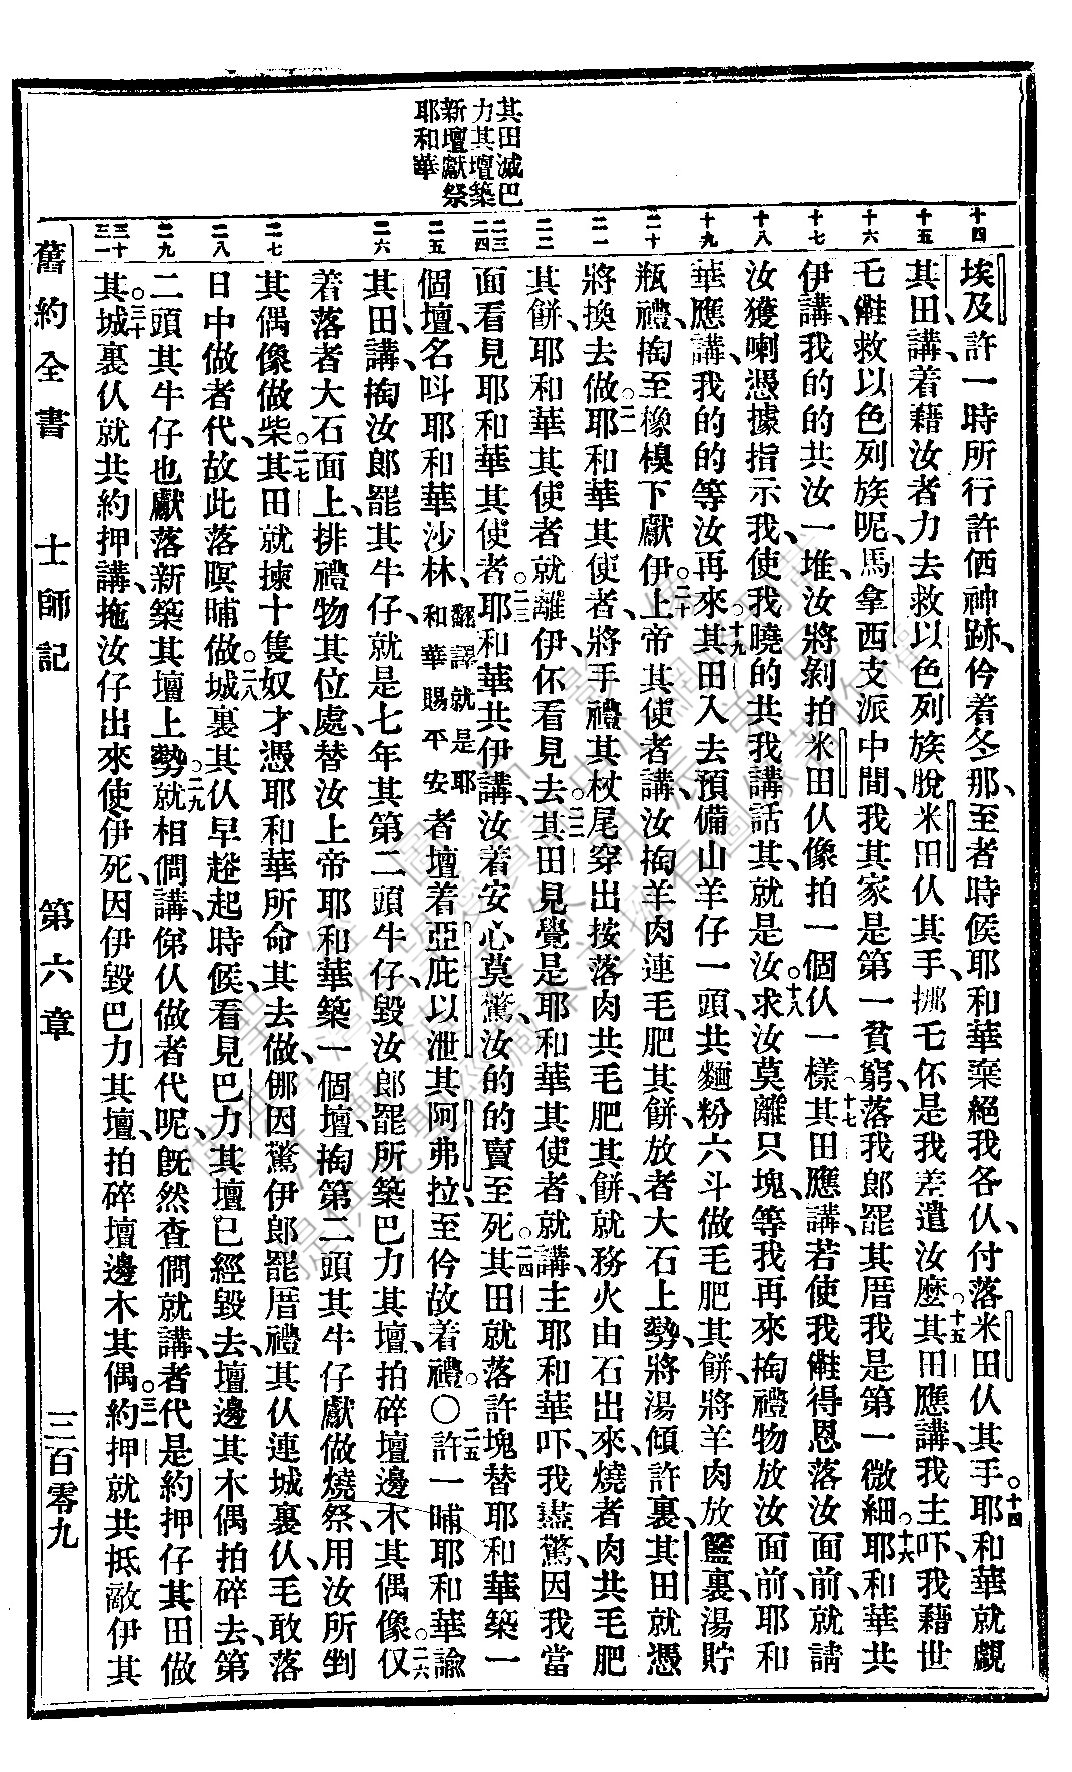 其田滅巴
力其壇築
新壇獻祭
耶和華
十四
十五
十六
十七
十八
十九
二十
二一
二二
二三
二四
二五
二六
二七
二八
二九
三十
三一
埃及許一時所行許価神跡、伶着冬那、至者時候耶和華棄絕我各仈、付落米田仈其手。十四耶和華就覷
其田講、着藉汝者力去救以色列族脫米田仈其手、挪毛伓是我差遣汝麼。十五其田應講、我主吓、我藉世
毛㒰救以色列族呢、馬拿西支派中間、我其家是第一貧窮、落我郎罷其厝我是第一微細。十六耶和華共
伊講、我的的共汝一堆、汝將剝拍米田仈像拍一個仈一樣。十七其田應講、若使我㒰得恩落汝面前、就請
汝獲喇憑據指示我、使我曉的共我講話其就是汝。十八求汝莫離只塊、等我再來掏禮物放汝面前、耶和
華應講、我的的等汝再來。十九其田入去預備山羊仔一頭、共麵粉六斗做毛肥其餅、將羊肉放籃裏、湯貯
瓶禮、掏至橡模下獻伊。二十上帝其使者講、汝掏羊肉連毛肥其餅、放者大石上、勢將湯傾許裏、其田就憑
將換去做。二一耶和華其使者、將手禮其杖尾穿出按落肉共毛肥其餅、就務火由石出來、燒者肉共毛肥
其餅、耶和華其使者就離伊伓看見去。二二其田見覺是耶和華其使者、就講、主耶和華吓、我盡驚、因我當
面看見耶和華其使者。二三耶和華共伊講、汝着安心莫驚、汝的的賣至死。二四其田就落許塊替耶和華築一
個壇、名叫耶和華沙林、翻譯就是耶和華賜平安者壇着亞庇以泄其阿弗拉、至伶故着禮。○二五許一晡耶和華諭
其田講、掏汝郎罷其牛仔、就是七年其第二頭牛仔、毀汝郎罷所築巴力其壇、拍碎壇邊木其偶像。二六仅
着落者大石面上、排禮物其位處、替汝上帝耶和華築一個壇、掏第二頭其牛仔獻做燒祭、用汝所剉
其偶像做柴。二七其田就揀十隻奴才、憑耶和華所命其去做、挪因驚伊郎罷厝禮其仈連城裏仈、毛敢落
日中做者代、故此落暝晡做。二八城裏其仈早趂起時候、看見巴力其壇已經毀去、壇邊其木偶拍碎去、第
二頭其牛仔也獻落新築其壇上勢。二九就相僩講、俤仈做者代呢、既然查僩就講、者代是約押仔其田做
其。三十城裏仈就共約押講、拖汝仔出來使伊死、因伊毀巴力其壇、拍碎壇邊木其偶。三一約押就共抵敵伊其
舊約全書 士師記 第六章 三百零九